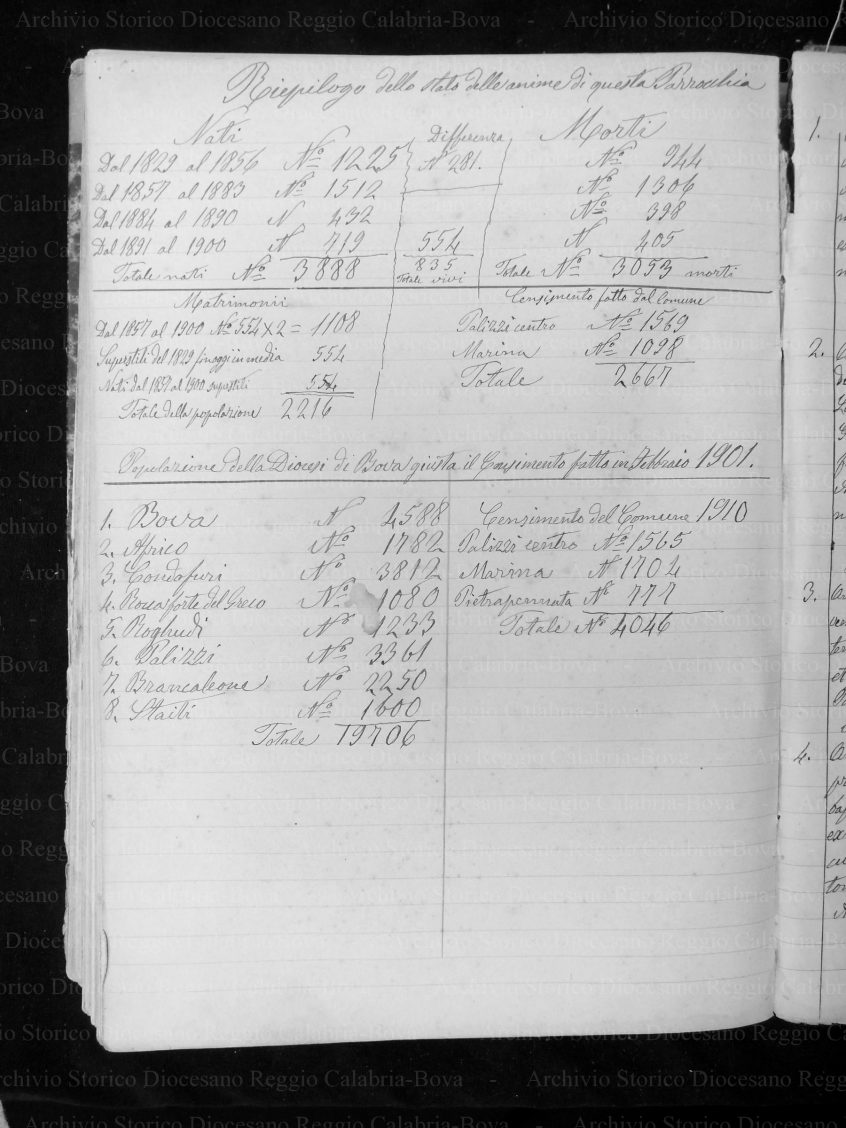 Riepilogo dello stato delle anime di questa Parrocchia
Nati
Dal 1829 al 1856 Nº 1225
Dal 1857 al 1883 Nº 1512
Dal 1884 al 1890 N 432
Dal 1891 al 1900 N 719
Totale nati Nº 3888
Differenza
Nº 281.
554
835
Totale vivi
Morti
Nº 944
Nº 1306
Nº 398
N 405
Totale Nº 3053 morti
Matrimonii
Dal 1857 al 1900 Nº 554 x 2 = 1108
Superstiti del 1829 fin oggi in media 554
Nati dal 1857 al 1900 superstiti 554
Totale della popolazione 2216
Censimento fatto dal comune
Palizzi centro Nº 1569
Marina Nº 1098
Totale 2667
Popolazione della Diocesi di Bova giusta il Censimento fatto in Febbraio 1901.
1. Bova N 4588
2. Africo Nº 1782
3. Condofuri Nº 3812
4. Roccaforte del Greco Nº 1080
5. Roghudi Nº 1233
6. Palizzi Nº 3361
7. Brancaleone Nº 2250
8. Staiti Nº 1600
Totale 19706
Censimento del Comune 1910
Palizzi centro Nº 1565
Marina Nº 1704
Pietrapennata Nº 777
Totale Nº 4046
1.
2.
3.
4.
Archivio Storico Diocesano Reggio Calabria-Bova - Archivio Storico Diocesano Reggio